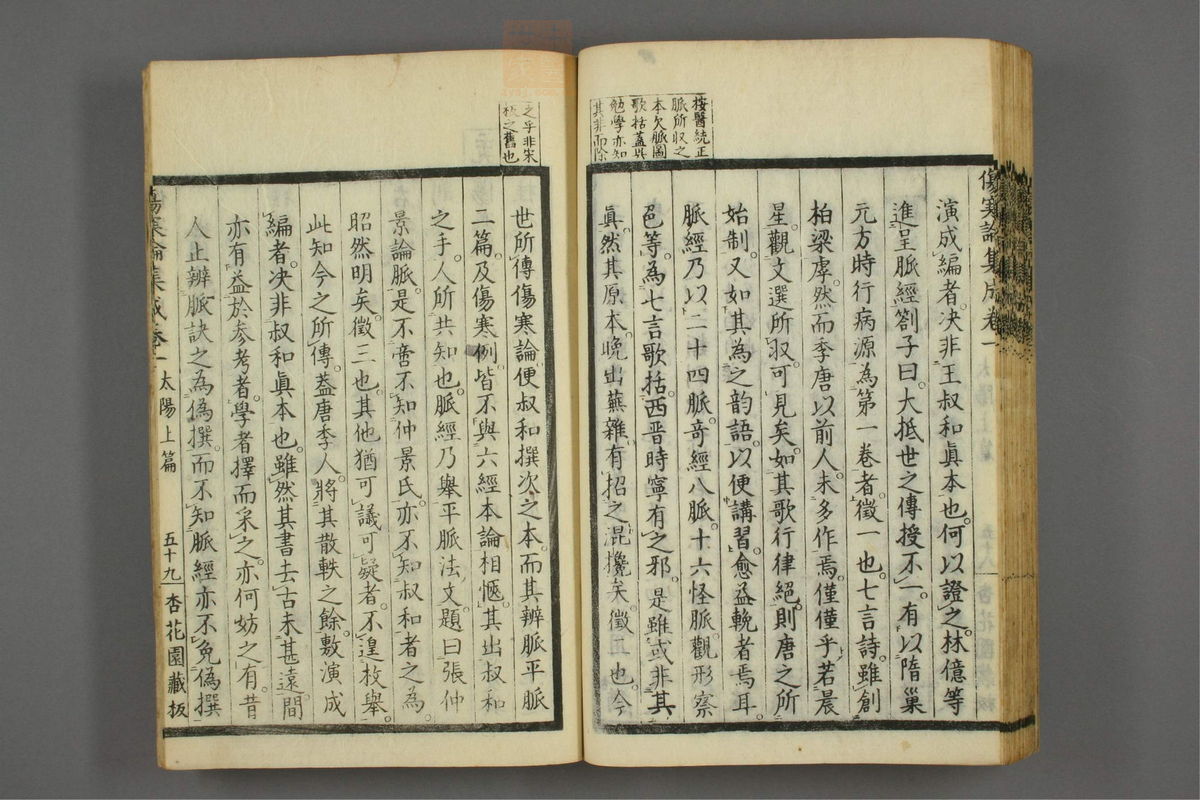 傷寒論集成卷一
演成編者决非王叔和眞本也何以證之林億等
進呈脈經劄子曰大抵世之傳授不一有以隋巢
元方時行病源為第一卷者徵一也七言詩雖創
柏梁㙤然而季唐以前人未多作焉僅僅乎若晨
星觀文選所収可見矣如其歌行律絕則唐之所
始制又如其為之韵語以便講習愈益輓者焉耳
脈經乃以二十四脈奇經八脈十六怪脈觀形察
色等為七言歌括西晋時寧有之邪是雖或非其
眞然其原本晚出蕪雜有招之混攙矣徵二也今
按醫統正
脈所収之
本欠脈圖
歌括蓋吳
勉學亦知
其非而除
世所傳傷寒論便叔和撰次之本而其辨脈平脈
二篇及傷寒例皆不與六經本論相愜其出叔和
之手人所共知也脈經乃舉平脈法文題曰張仲
景論脈是不啻不知仲景氏亦不知叔和者之為
昭然明矣徵三也其他猶可議可疑者不遑枚舉
此知今之所傳蓋唐季人將其散軼之餘敷演成
編者决非叔和眞本也雖然其書去古未甚遠間
亦有益於参考者學者擇而采之亦何妨之有昔
人止辨脈訣之為偽撰而不知脈經亦不免偽撰
之乎非宋
板之舊也
傷寒論集成卷一 太陽上篇 五十九 杏花園藏板